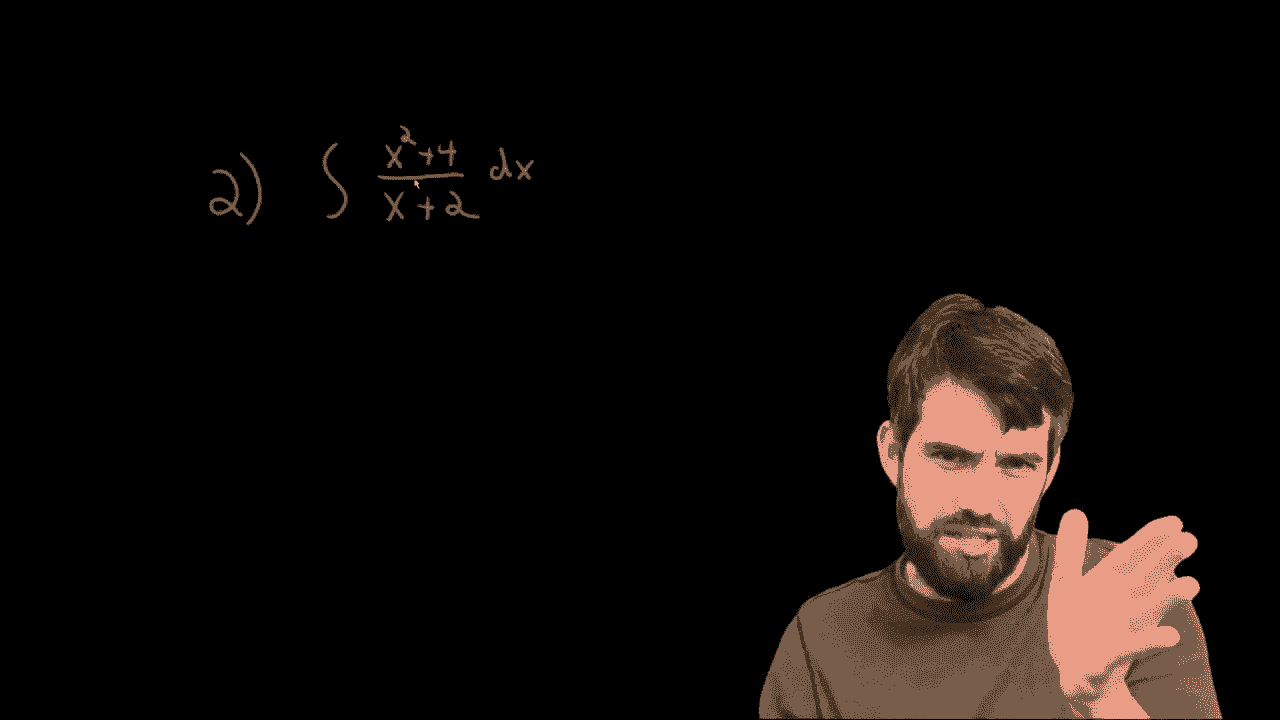 2) ∫ x²+4 / x+2 dx